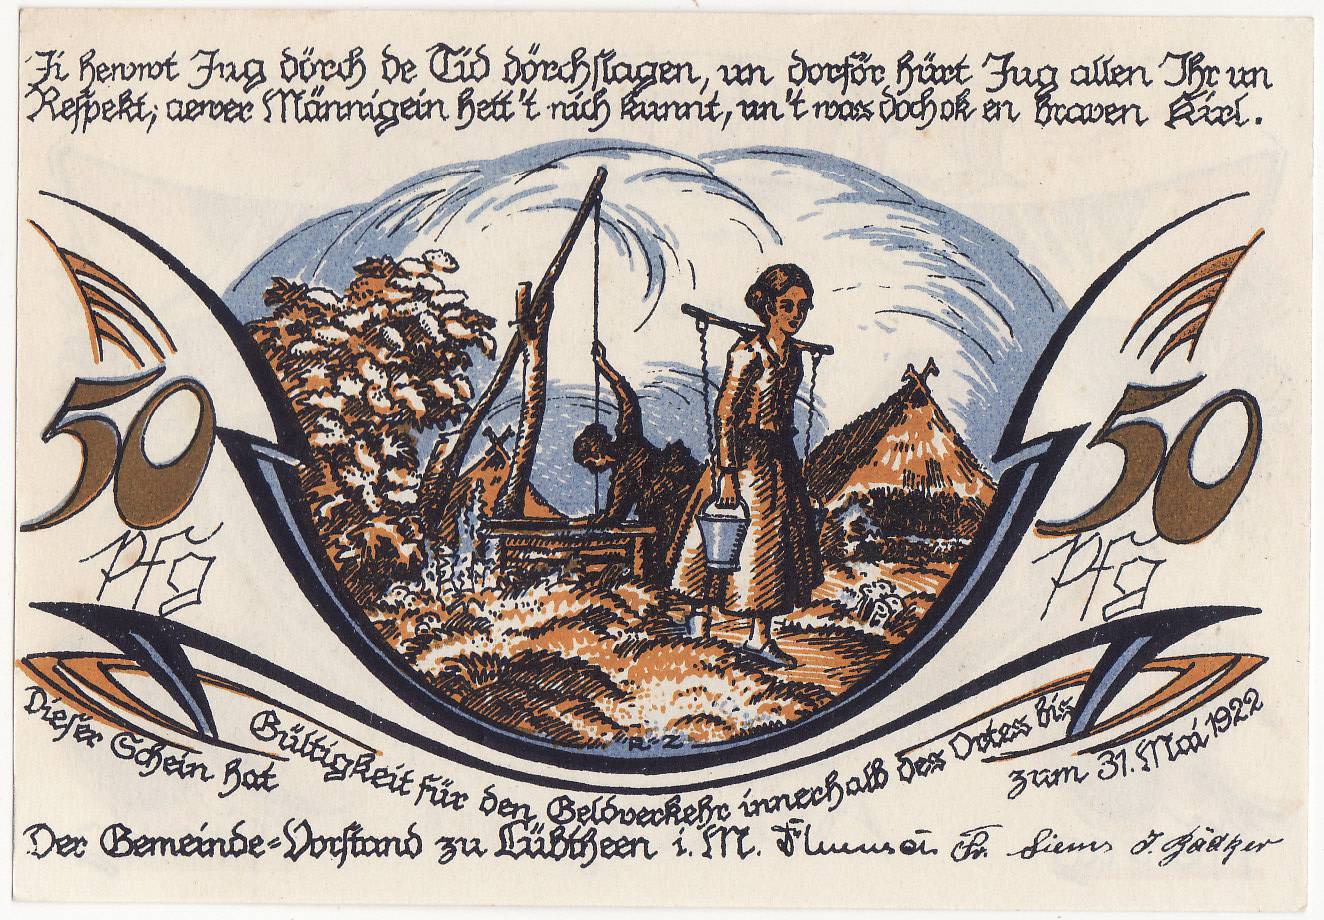 Ji hewwt Jug dörch de Tid dörchslagen, un dorför hürt Jug allen Ihr un
Respekt; aewer Männigein hett't nich kunnt, un't was doch ok en braven Kirl.
50
Pfg
50
Pfg
R-Z.
Dieser Schein hat Gültigkeit für den Geldverkehr innerhalb des Ortes bis zum 31. Mai 1922
Der Gemeinde-Vorstand zu Lübtheen i. M. Fr. Siems J. Bädker